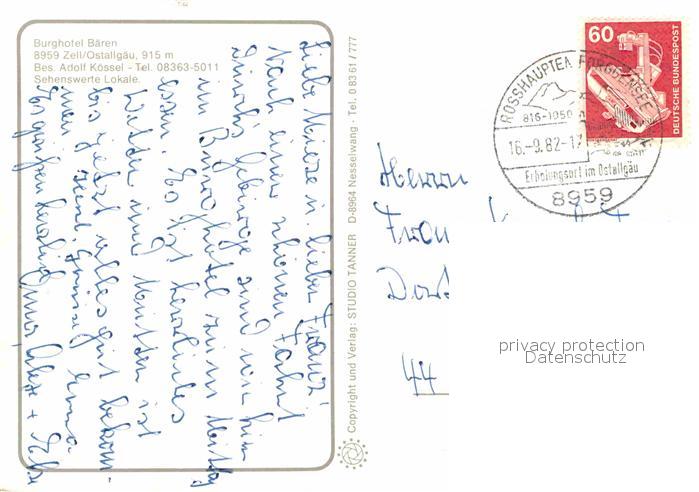 Burghotel Bären
8959 Zell/Ostallgäu, 915 m
Bes. Adolf Kössel - Tel. 08363-5011
Sehenswerte Lokale.
Liebe u. lieber Franz!
Nach einer schönen Fahrt
Gebirge sind wir hier
im Burghotel zum Mittag
essen. Es ist herrliches
Wetter und
bis jetzt alles gut bekom-
men.
Es grüßen herzlich Oma, +
Copyright und Verlag: STUDIO TANNER D-8964 Nesselwang · Tel. 0 83 61 / 777
60
DEUTSCHE BUNDESPOST
ROSSHAUPTEN FORGGENSEE
816-1956
16.-9.82-17
Erholungsort im Ostallgäu
8959
Herrn
Frau
44
privacy protection
Datenschutz